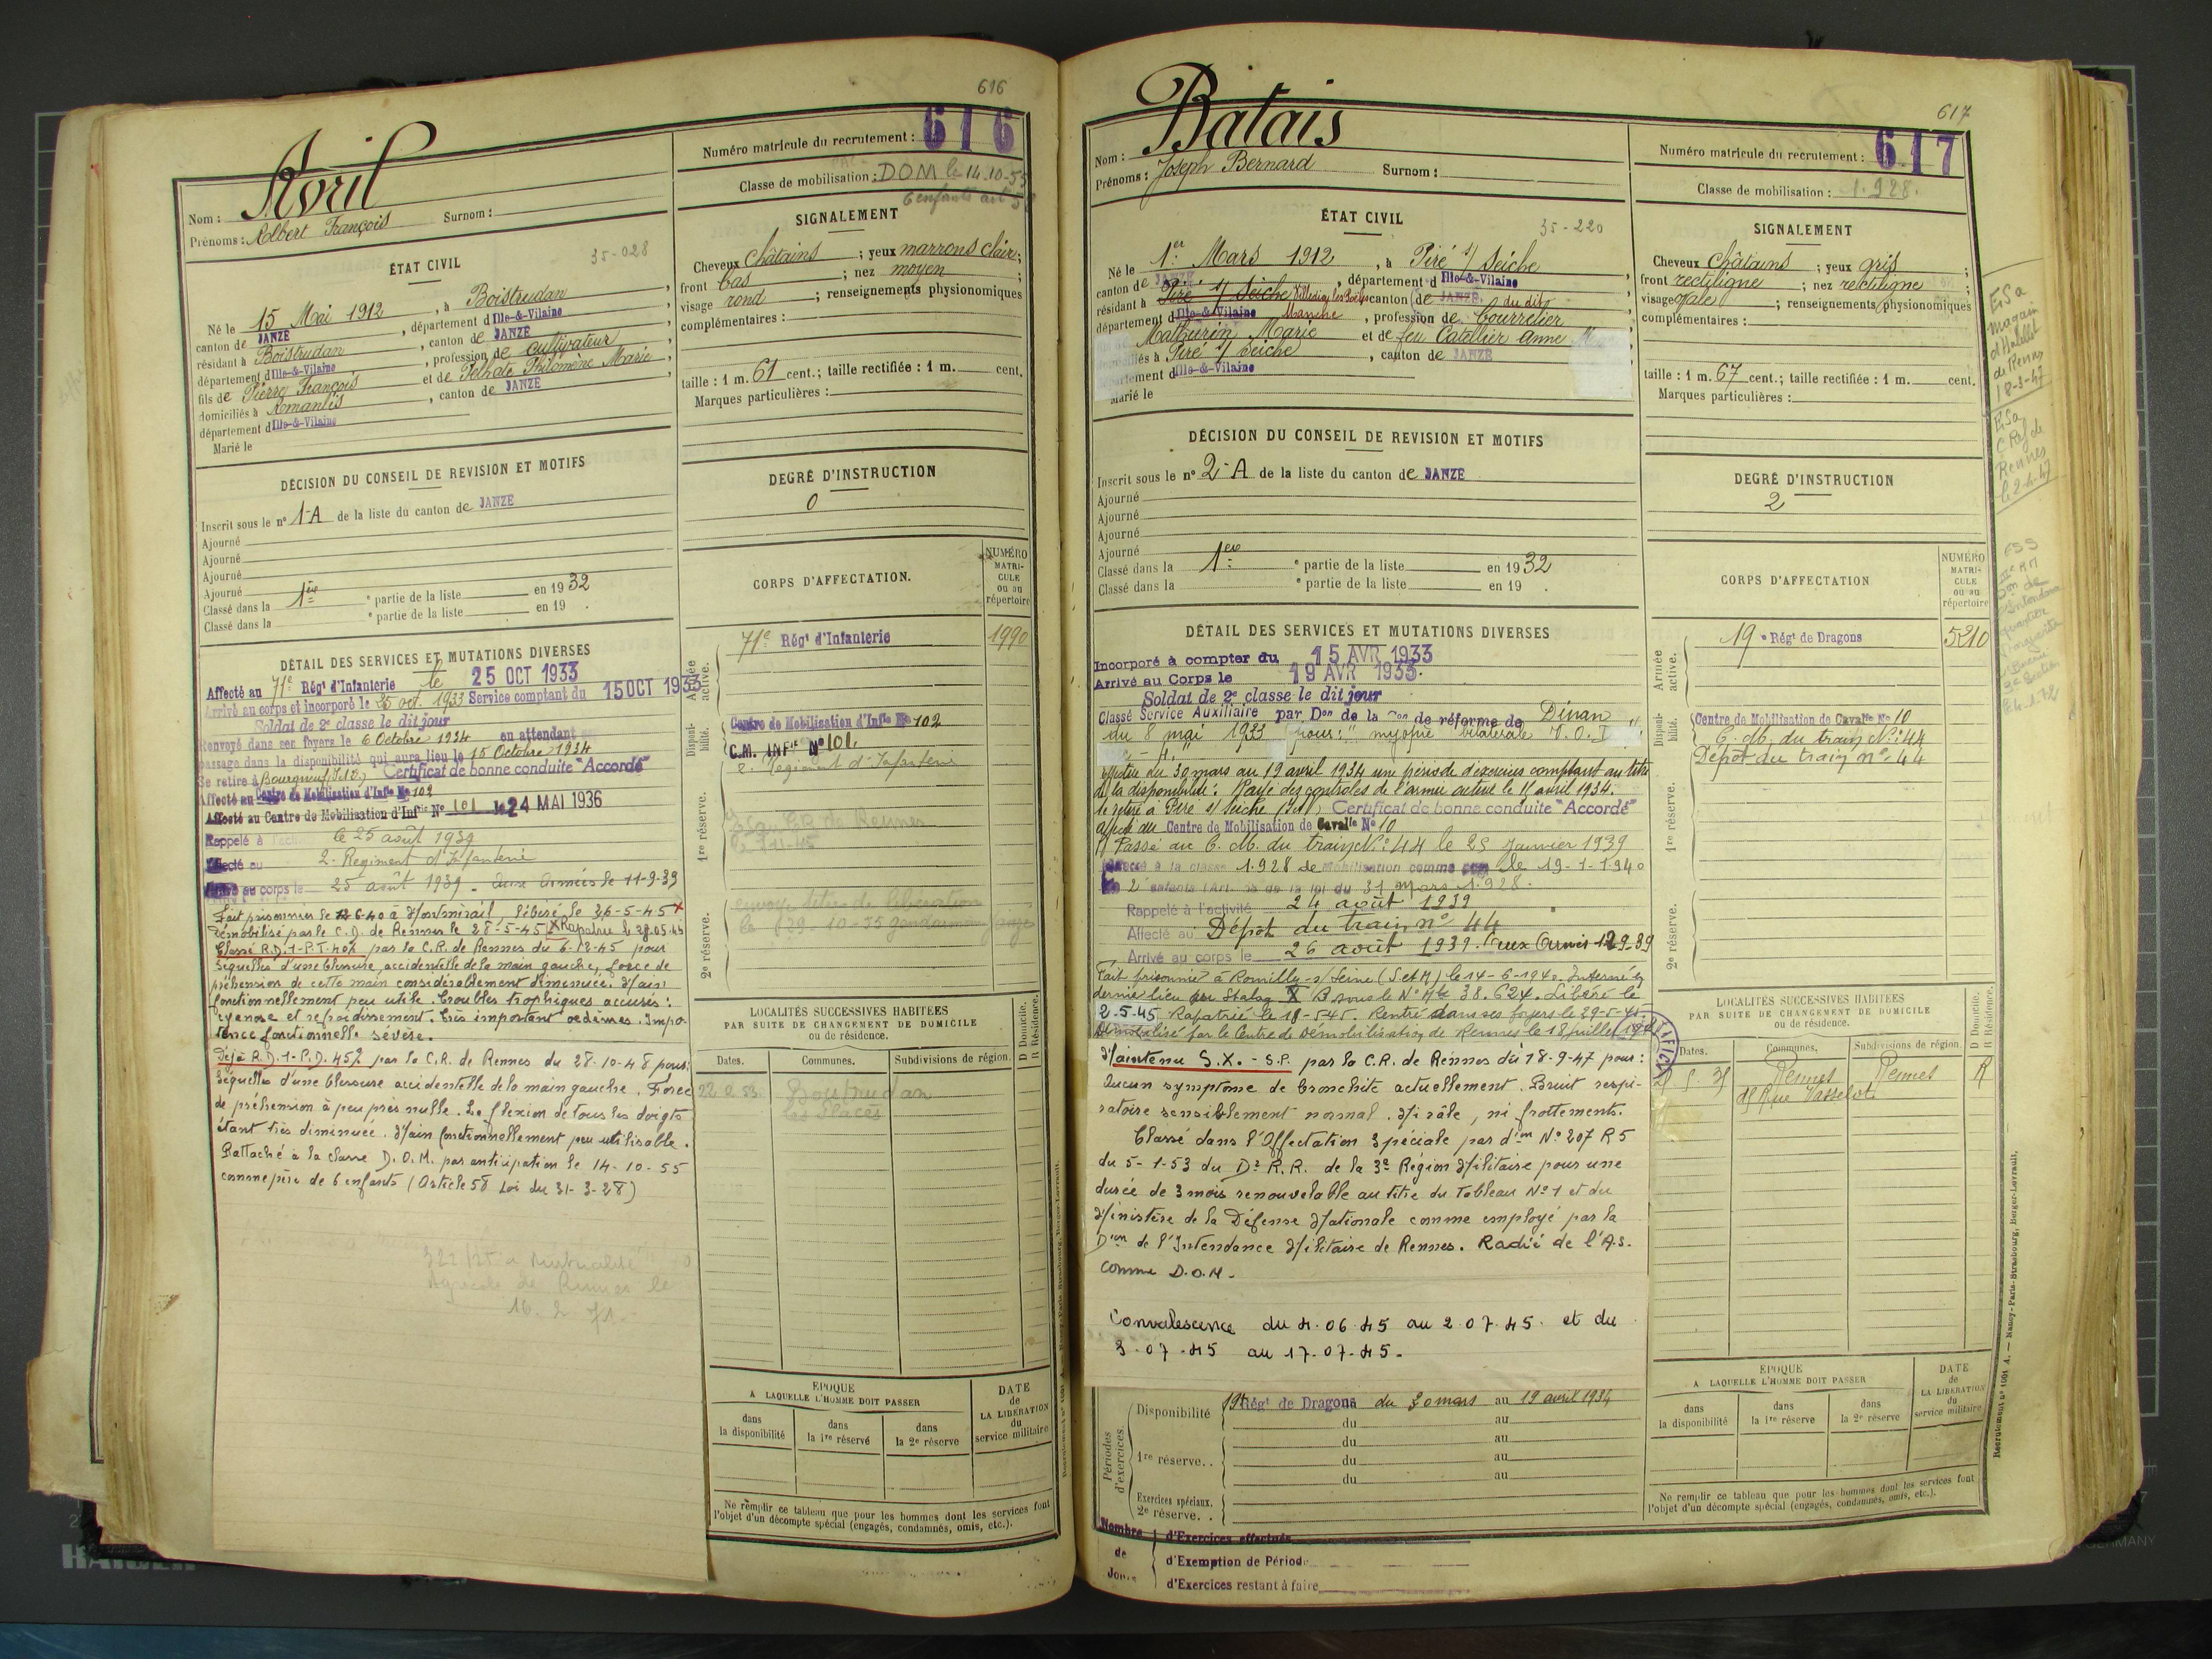 616
Nom : Avril
Prénoms : Albert François Surnom :
Numéro matricule du recrutement : 616
Classe de mobilisation : DOM le 14.10-55
6 enfants art 58
ÉTAT CIVIL
35-028
Né le 15 Mai 1912, à Boistrudan,
canton de JANZE, département d Ille-&-Vilaine
résidant à Boistrudan, canton de JANZE
département d Ille-&-Vilaine, profession de cultivateur
fils de Pierre François et de Marie,
domiciliés à, canton de JANZE
département d Ille-&-Vilaine
Marié le
SIGNALEMENT
Cheveux châtains ; yeux marrons clair ;
front bas ; nez moyen ;
visage rond ; renseignements physionomiques
complémentaires :
taille : 1 m. 61 cent. ; taille rectifiée : 1 m. cent.
Marques particulières :
DÉCISION DU CONSEIL DE REVISION ET MOTIFS
Inscrit sous le n° 1-A de la liste du canton de JANZE
Ajourné
Ajourné
Ajourné
Ajourné
Classé dans la 1ère e partie de la liste en 1932
Classé dans la e partie de la liste en 19 .
DEGRÉ D'INSTRUCTION
0
DÉTAIL DES SERVICES ET MUTATIONS DIVERSES
Affecté au 71e Régt d'Infanterie le 25 OCT 1933
Arrivé au corps et incorporé le 25 oct. 1933 Service comptant du 15 OCT 1933
Soldat de 2e classe le dit jour
Renvoyé dans ses foyers le 6 Octobre 1934 en attendant
passage dans la disponibilité qui aura lieu le 15 Octobre 1934
Se retire à Bourgneuf Certificat de bonne conduite "Accordé"
Affecté au Centre de Mobilisation d'Infie No 102
Affecté au Centre de Mobilisation d'Infrie No 101 le 24 MAI 1936
Rappelé à le 25 août 1939
Affecté au 2. Régiment d'Infanterie
Arrivé au corps le 25 août 1939 - Aux Armées le 11-9-39
Fait prisonnier le 12-6-40 à Montmirail, libéré le 26-5-45 X
Démobilisé par le C.D. de Rennes le 28-5-45 X Rapatrié le 28.05.45
Classé R.D.1-P.T. par la C.R. de Rennes du 6-12-45 pour
séquelles d'une blessure accidentelle de la main gauche, force de
préhension de cette main considérablement diminuée. Main
fonctionnellement peu utile. Troubles trophiques accusés :
cyanose et refroidissement. Très important oedèmes. Impo-
tence fonctionnelle sévère.
Déjà R.D.1-P.D. par la C.R. de Rennes du 28-10-48 pour :
Séquelles d'une blessure accidentelle de la main gauche. Force
de préhension à peu près nulle. La flexion de tous les doigts
étant très diminuée. Main fonctionnellement peu utilisable.
Rattaché à la classe D.O.M. par anticipation le 14-10-55
comme père de 6 enfants (Article 58 Loi du 31-3-28)
Mutualité
Agricole de Rennes le
CORPS D'AFFECTATION.
NUMÉRO MATRI-CULE ou au répertoire
Armée active.
71e Régt d'Infanterie 1990
Disponi-bilité.
Centre de Mobilisation d'Infie No 102
C.M. INFie No 101
2. Régiment d'Infanterie
1re réserve.
2e réserve.
LOCALITÉS SUCCESSIVES HABITÉES
PAR SUITE DE CHANGEMENT DE DOMICILE
ou de résidence.
Dates. Communes. Subdivisions de région. D Domicile. R Résidence.
Boistrudan
ÉPOQUE
A LAQUELLE L'HOMME DOIT PASSER
dans la disponibilité
dans la 1re réserve
dans la 2e réserve
DATE de LA LIBÉRATION du service militaire
Ne remplir ce tableau que pour les hommes dont les services font
l'objet d'un décompte spécial (engagés, condamnés, omis, etc.).
617
Nom : Batais
Prénoms : Joseph Bernard Surnom :
Numéro matricule du recrutement : 617
Classe de mobilisation : 1.928.
ÉTAT CIVIL
35-220
Né le 1er Mars 1912, à Piré s/ Seiche,
canton de JANZE, département d Ille-&-Vilaine
résidant à Piré s/ Seiche Villedieu les Poëles canton de JANZE du dit
département d Ille-&-Vilaine Manche, profession de bourrelier
Mathurin Marie et de feu Catellier Anne M
domiciliés à Piré s/ Seiche, canton de JANZE
département d Ille-&-Vilaine
Marié le
SIGNALEMENT
Cheveux châtains ; yeux gris ;
front rectiligne ; nez rectiligne ;
visage ovale ; renseignements physionomiques
complémentaires :
taille : 1 m. 67 cent. ; taille rectifiée : 1 m. cent.
Marques particulières :
E.S a
magasin
d'Habillt
de Rennes
18-3-47
C Ref de
Rennes
DÉCISION DU CONSEIL DE REVISION ET MOTIFS
Inscrit sous le n° 2-A de la liste du canton de JANZE
Ajourné
Ajourné
Ajourné
Ajourné
Classé dans la 1ère e partie de la liste en 1932
Classé dans la e partie de la liste en 19 .
DEGRÉ D'INSTRUCTION
2
DÉTAIL DES SERVICES ET MUTATIONS DIVERSES
Incorporé à compter du 15 AVR 1933
Arrivé au Corps le 19 AVR 1933.
Soldat de 2e classe le dit jour
Classé Service Auxiliaire par Don de la Con de réforme de Dinan
du 8 mai 1933 pour : "myopie bilatérale V.O.I"
effectué du 30 mars au 19 avril 1934 une période d'exercices comptant au titre
de la disponibilité. Rayé des contrôles de l'armée active le avril 1934.
Se retire à Piré s/ Seiche (I et V) Certificat de bonne conduite "Accordé"
Affecté au Centre de Mobilisation de Cavalie No 10
Passé au C. M. du train No 44 le 25 Janvier 1939
à la classe 1.928 de mobilisation comme le 19-1-1940
2 enfants (Art. de la loi du 31 mars 1928.
Rappelé à l'activité 24 août 1939
Affecté au Dépôt du train no 44
Arrivé au corps le 26 août 1939. Aux Armées 12-9-39
Fait prisonnier à Romilly-s/Seine (S et M) le 14-6-1940. Interné en
dernier lieu au Stalag X B sous le No Mle 38.624. Libéré le
2.5.45 Rapatrié le 18-5-45. Rentré dans ses foyers le 29-5-45.
Démobilisé par le Centre de Démobilisation de Rennes le 18 juillet 1945
Maintenu S.X. - S.P. par la C.R. de Rennes du 18-9-47 pour :
Aucun symptome de bronchite actuellement. Bruit respi-
ratoire sensiblement normal. Ni râle, ni frottements.
Classé dans l'Affectation Spéciale par don No 207 R5
du 5-1-53 du Dr R.R. de la 3e Région Militaire pour une
durée de 3 mois renouvelable au titre du Tableau No 1 et du
Ministère de la Défense Nationale comme employé par la
Dion de l'Intendance Militaire de Rennes. Radié de l'A.S.
comme D.O.M.
Convalescence du 4.06.45 au 2.07.45. et du
3.07.45 au 17.07.45.
CORPS D'AFFECTATION
NUMÉRO MATRI-CULE ou au répertoire
Armée active.
19e Régt de Dragons 5210
Disponi-bilité.
Centre de Mobilisation de Cavalie No 10
C. M. du train No 44
Dépôt du train no 44
1re réserve.
2e réserve.
LOCALITÉS SUCCESSIVES HABITÉES
PAR SUITE DE CHANGEMENT DE DOMICILE
ou de résidence.
Dates. Communes. Subdivisions de région. D Domicile. R Résidence.
Rennes Rennes R
Rue Vasselot
Périodes d'exercices.
Disponibilité 19e Régt de Dragons du 30 mars au 19 avril 1934
du au
du au
1re réserve. . du au
du au
Exercices spéciaux.
2e réserve. .
Nombre de Jours
d'Exercices effectués
d'Exemption de Période
d'Exercices restant à faire
ÉPOQUE
A LAQUELLE L'HOMME DOIT PASSER
dans la disponibilité
dans la 1re réserve
dans la 2e réserve
DATE de LA LIBÉRATION du service militaire
Ne remplir ce tableau que pour les hommes dont les services font
l'objet d'un décompte spécial (engagés, condamnés, omis, etc.).
Recrutement No 1001 A. — Nancy-Paris-Strasbourg, Berger-Levrault.